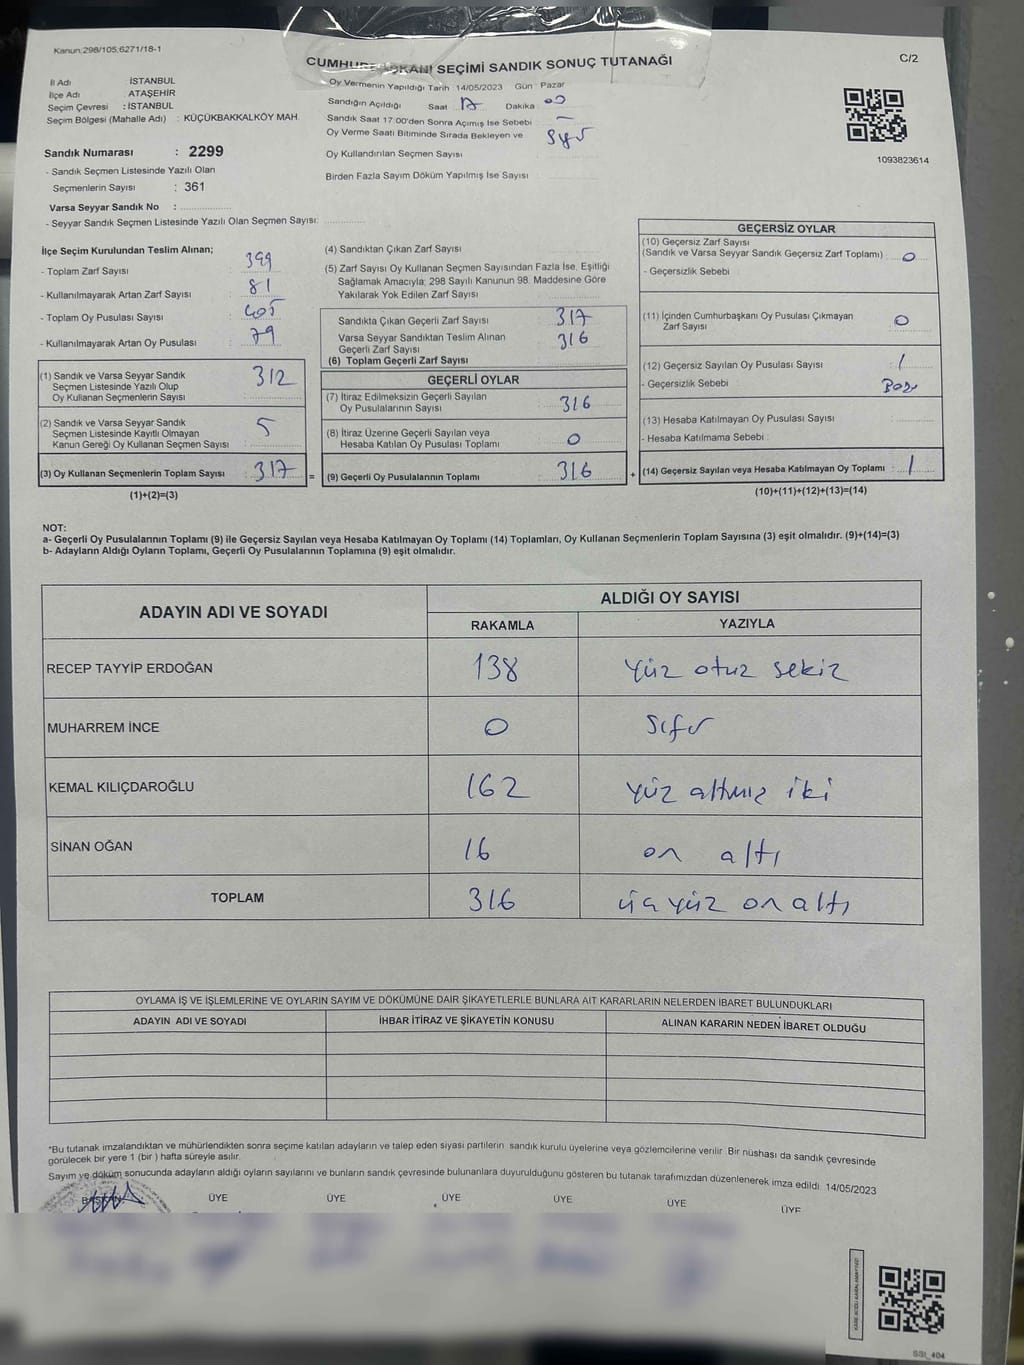 Kanun:298/105;6271/18-1
C/2
CUMHURBAŞKANI SEÇİMİ SANDIK SONUÇ TUTANAĞI
İl Adı İSTANBUL
İlçe Adı ATAŞEHİR
Seçim Çevresi : İSTANBUL
Seçim Bölgesi (Mahalle Adı) : KÜÇÜKBAKKALKÖY MAH.
Sandık Numarası : 2299
- Sandık Seçmen Listesinde Yazılı Olan
Seçmenlerin Sayısı : 361
Varsa Seyyar Sandık No :
- Seyyar Sandık Seçmen Listesinde Yazılı Olan Seçmen Sayısı:
Oy Vermenin Yapıldığı Tarih 14/05/2023 Gün : Pazar
Sandığın Açıldığı Saat 17 Dakika 00
Sandık Saat 17:00'den Sonra Açımış İse Sebebi —
Oy Verme Saati Bitiminde Sırada Bekleyen ve
Oy Kullandırılan Seçmen Sayısı sıfır
Birden Fazla Sayım Döküm Yapılmış İse Sayısı
1093823614
İlçe Seçim Kurulundan Teslim Alınan;
- Toplam Zarf Sayısı 399
- Kullanılmayarak Artan Zarf Sayısı 81
- Toplam Oy Pusulası Sayısı 405
- Kullanılmayarak Artan Oy Pusulası 79
(1) Sandık ve Varsa Seyyar Sandık
Seçmen Listesinde Yazılı Olup
Oy Kullanan Seçmenlerin Sayısı 312
(2) Sandık ve Varsa Seyyar Sandık
Seçmen Listesinde Kayıtlı Olmayan
Kanun Gereği Oy Kullanan Seçmen Sayısı 5
(3) Oy Kullanan Seçmenlerin Toplam Sayısı 317 =
(1)+(2)=(3)
(4) Sandıktan Çıkan Zarf Sayısı
(5) Zarf Sayısı Oy Kullanan Seçmen Sayısından Fazla İse, Eşitliği
Sağlamak Amacıyla; 298 Sayılı Kanunun 98. Maddesine Göre
Yakılarak Yok Edilen Zarf Sayısı
Sandıkta Çıkan Geçerli Zarf Sayısı 317
Varsa Seyyar Sandıktan Teslim Alınan
Geçerli Zarf Sayısı 316
(6) Toplam Geçerli Zarf Sayısı
GEÇERLİ OYLAR
(7) İtiraz Edilmeksizin Geçerli Sayılan
Oy Pusulalarının Sayısı 316
(8) İtiraz Üzerine Geçerli Sayılan veya
Hesaba Katılan Oy Pusulası Toplamı 0
(9) Geçerli Oy Pusulalarının Toplamı 316 +
GEÇERSİZ OYLAR
(10) Geçersiz Zarf Sayısı
(Sandık ve Varsa Seyyar Sandık Geçersiz Zarf Toplamı) 0
- Geçersizlik Sebebi
(11) İçinden Cumhurbaşkanı Oy Pusulası Çıkmayan
Zarf Sayısı 0
(12) Geçersiz Sayılan Oy Pusulası Sayısı 1
- Geçersizlik Sebebi
(13) Hesaba Katılmayan Oy Pusulası Sayısı
- Hesaba Katılmama Sebebi
(14) Geçersiz Sayılan veya Hesaba Katılmayan Oy Toplamı 1
(10)+(11)+(12)+(13)=(14)
NOT:
a- Geçerli Oy Pusulalarının Toplamı (9) ile Geçersiz Sayılan veya Hesaba Katılmayan Oy Toplamı (14) Toplamları, Oy Kullanan Seçmenlerin Toplam Sayısına (3) eşit olmalıdır. (9)+(14)=(3)
b- Adayların Aldığı Oyların Toplamı, Geçerli Oy Pusulalarının Toplamına (9) eşit olmalıdır.
ADAYIN ADI VE SOYADI ALDIĞI OY SAYISI
RAKAMLA YAZIYLA
RECEP TAYYİP ERDOĞAN 138 Yüz otuz sekiz
MUHARREM İNCE 0 Sıfır
KEMAL KILIÇDAROĞLU 162 Yüz altmış iki
SİNAN OĞAN 16 on altı
TOPLAM 316 üçyüz on altı
OYLAMA İŞ VE İŞLEMLERİNE VE OYLARIN SAYIM VE DÖKÜMÜNE DAİR ŞİKAYETLERLE BUNLARA AİT KARARLARIN NELERDEN İBARET BULUNDUKLARI
ADAYIN ADI VE SOYADI İHBAR İTİRAZ VE ŞİKAYETİN KONUSU ALINAN KARARIN NEDEN İBARET OLDUĞU
*Bu tutanak imzalandıktan ve mühürlendikten sonra seçime katılan adayların ve talep eden siyasi partilerin sandık kurulu üyelerine veya gözlemcilerine verilir. Bir nüshası da sandık çevresinde
görülecek bir yere 1 (bir) hafta süreyle asılır.
Sayım ve döküm sonucunda adayların aldığı oyların sayılarını ve bunların sandık çevresinde bulunanlara duyurulduğunu gösteren bu tutanak tarafımızdan düzenlenerek imza edildi. 14/05/2023
BAŞKAN ÜYE ÜYE ÜYE ÜYE ÜYE ÜYE
SSI_404